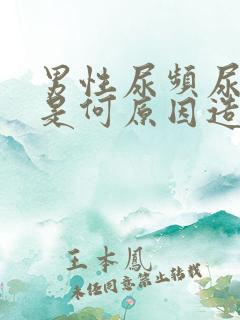 男性尿频尿
是何原因造
王本凤
未经同意禁止转载